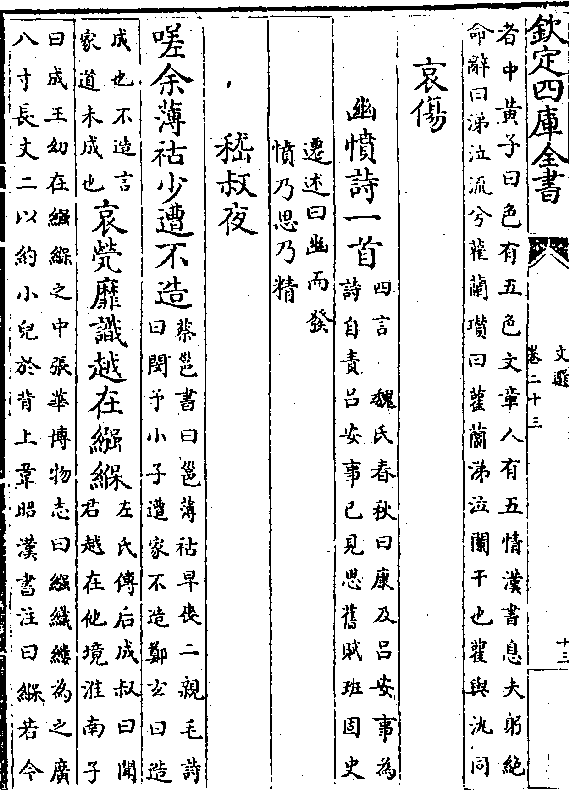 欽定四庫全書
文選
卷二十三
十三
者中黃子曰色有五色文章人有五情漢書息夫躬絶
命辭曰涕泣流兮雚蘭瓚曰雚蘭涕泣闌干也雚與汍同
哀傷
幽憤詩一首
四言 魏氏春秋曰康及呂安事為
詩自責呂安事已見思舊賦班固史
遷述曰幽而發
憤乃思乃精
嵇叔夜
嗟余薄祜少遭不造
蔡邕書曰邕薄祜早喪二親毛詩
曰閔予小子遭家不造鄭玄曰造
成也不造言
家道未成也
哀煢靡識越在繈緥
左氏傳后成叔曰聞
君越在他境淮南子
曰成王幼在繈緥之中張華博物志曰繈織縷為之廣
八寸長丈二以約小兒於背上韋昭漢書注曰緥若今